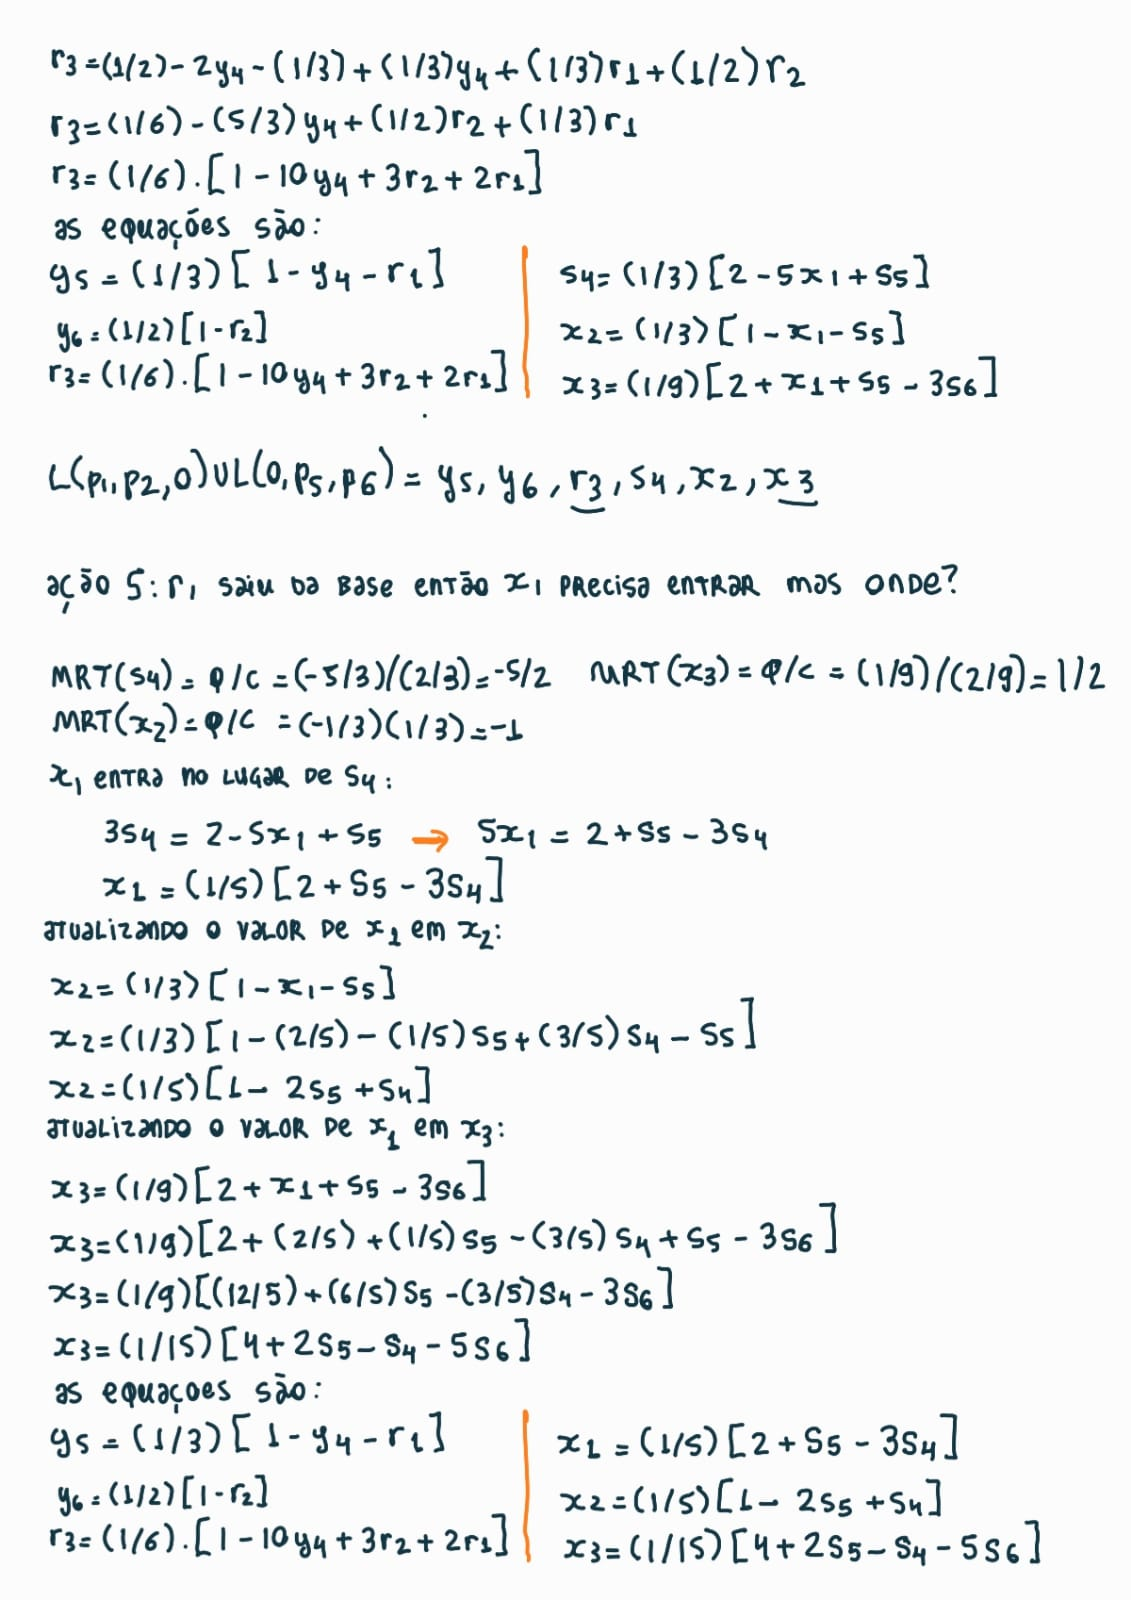 r3=(1/2)-2y4-(1/3)+(1/3)y4+(1/3)r1+(1/2)r2
r3=(1/6)-(5/3)y4+(1/2)r2+(1/3)r1
r3=(1/6).[1-10y4+3r2+2r1]
as equações são:
y5=(1/3)[1-y4-r1]
y6=(1/2)[1-r2]
r3=(1/6).[1-10y4+3r2+2r1]
s4=(1/3)[2-5x1+s5]
x2=(1/3)[1-x1-s5]
x3=(1/9)[2+x1+s5-3s6]
L(p1,p2,0)UL(0,p5,p6)=y5,y6,r3,s4,x2,x3
ação 5: r1 saiu da base então x1 precisa entrar mas onde?
MRT(s4)=φ/c=(-5/3)/(2/3)=-5/2 MRT(x3)=φ/c=(1/9)/(2/9)=1/2
MRT(x2)=φ/c=(-1/3)(1/3)=-1
x1 entra no lugar de s4:
3s4=2-5x1+s5 → 5x1=2+s5-3s4
x1=(1/5)[2+s5-3s4]
atualizando o valor de x1 em x2:
x2=(1/3)[1-x1-s5]
x2=(1/3)[1-(2/5)-(1/5)s5+(3/5)s4-s5]
x2=(1/5)[1-2s5+s4]
atualizando o valor de x1 em x3:
x3=(1/9)[2+x1+s5-3s6]
x3=(1/9)[2+(2/5)+(1/5)s5-(3/5)s4+s5-3s6]
x3=(1/9)[(12/5)+(6/5)s5-(3/5)s4-3s6]
x3=(1/15)[4+2s5-s4-5s6]
as equaçoes são:
y5=(1/3)[1-y4-r1]
y6=(1/2)[1-r2]
r3=(1/6).[1-10y4+3r2+2r1]
x1=(1/5)[2+s5-3s4]
x2=(1/5)[1-2s5+s4]
x3=(1/15)[4+2s5-s4-5s6]